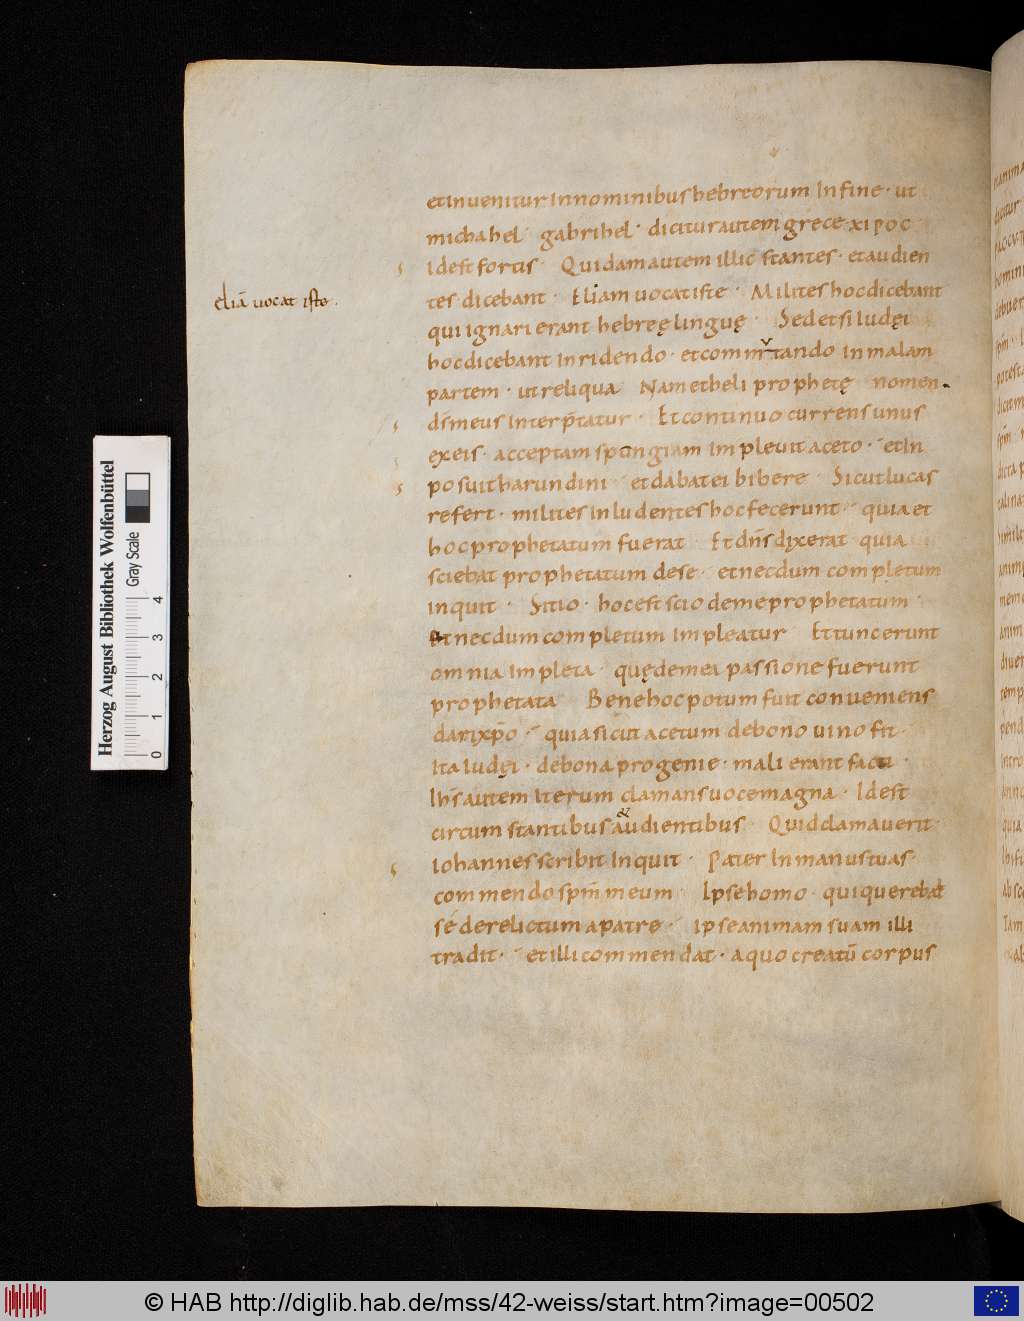 et inuenitur in nominibus hebreorum In fine · ut
michahel · gabrihel · dicitur autem grece xipoc
Idest fortis · Quidam autem illic stantes · et audien
tes dicebant · Eliam uocat iste · Milites hoc dicebant
eliā uocat iste .
qui ignari erant hebreę linguę · Sed et si Iudęi
hoc dicebant inridendo · et commutando in malam
partem · ut reliqua Nam et heli prophetę nomen
ds meus interp̄tatur · Et continuo currens unus
ex eis · acceptam spongiam impleuit aceto · et In
posuit harundini · et dabat ei bibere · Sicut lucas
refert · milites inludentes hoc fecerunt · quia et
hoc prophetatum fuerat · Et dn̄s dixerat quia
sciebat prophetatum de se · et necdum completum
inquit · Sitio · hoc est scio de me prophetatum
et necdum completum Impleatur Et tunc erunt
omnia Impleta · quę de mea passione fuerunt
prophetata Bene hoc potum fuit conueniens
dari xp̄o · quia sicut acetum de bono uino fit ·
Ita Iudęi · de bona progenie · mali erant facti ·
Ihs̄ autem Iterum clamans uoce magna · Idest
circum stantibus & audientibus · Quid clamauerit
Iohannes scribit Inquit · Pater In manus tuas ·
commendo sp̄m meum · Ipse homo · qui querebat
sé derelictum a patre · ipse animam suam illi
tradit · et illi commendat · a quo creatū corpus
Herzog August Bibliothek Wolfenbüttel
Gray Scale
0 1 2 3 4
© HAB http://diglib.hab.de/mss/42-weiss/start.htm?image=00502